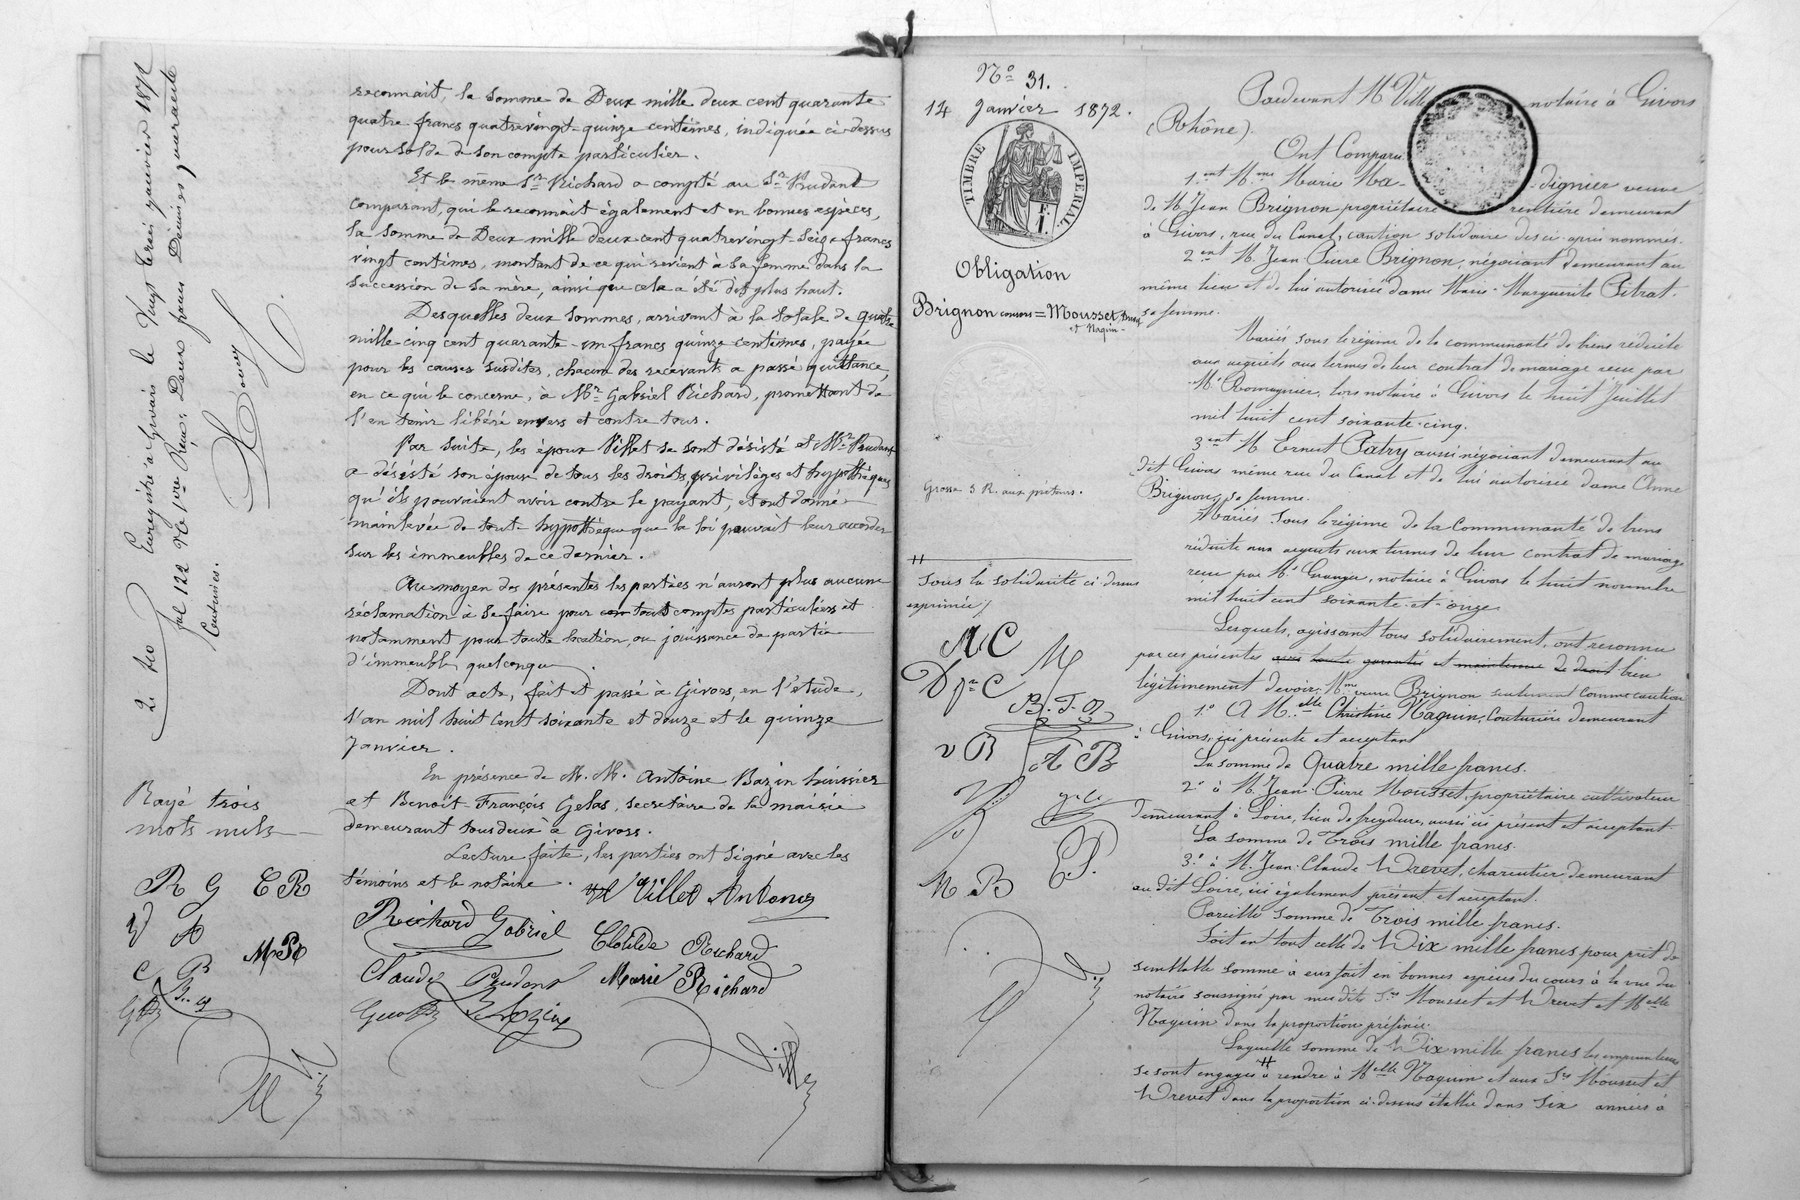 reconnait, la somme de Deux mille deux cent quarante
quatre francs quatrevingt-quinze centimes, indiquée ci-dessus
pour solde de son compte particulier.
Et le même Sr Richard a compté au Sr Prudant
comparant, qui le reconnait également et en bonnes espèces,
la somme de Deux mille deux cent quatrevingt-seize francs
vingt centimes, montant de ce qui revient à sa femme dans la
succession de sa mère, ainsi que cela a été dit plus haut.
Desquelles deux sommes, arrivant à la totale de quatre
mille cinq cent quarante-un francs quinze centimes, payée
pour les causes susdites, chacun des recevants a passé quittance,
en ce qui le concerne, à Mr Gabriel Richard, promettant de
l'en tenir libéré envers et contre tous.
Par suite, les époux Villet se sont désisté et Mr Prudant
a désisté son épouse de tous les droits, privilèges et hypothèques
qu'ils pouvaient avoir contre le payant, et ont donné
mainlevée de tout hypothèque que la loi pouvait leur accorder
sur les immeubles de ce dernier.
Au moyen des présentes les parties n'auront plus aucune
réclamation à se faire pour tout comptes particuliers et
notamment pour toute location, ou jouissance de partie
d'immeuble quelconque.
Dont acte, fait et passé à Givors, en l'étude,
l'an mil huit cent soixante et douze et le quinze
Janvier.
En présence de M. M. Antoine Bazin huissier
et Benoît-François Gelas, secrétaire de la mairie
demeurant tous deux à Givors.
Lecture faite, les parties ont signé avec les
témoins et le notaire.
Villet Antoine
Richard Gabriel
Clotilde Richard
Claude Prudant
Marie Richard
Enregistré à Givors le Vingt trois janvier 1872
fol 122 Ro
Deux francs Décimes quarante
Centimes.
Rayé trois
mots nuls
R G C R
M R
No 31.
14 Janvier 1872.
TIMBRE IMPERIAL
F.
1.
Obligation
Brignon consors = Mousset,
et Naquin
Grosse 3 R. aux prêteurs.
Sous la solidarité ci-dessus
exprimée
M C
M
B. F. B
v B
A B
E P.
M B
Pardevant Me Ville notaire à Givors
(Rhône).
Ont Comparu
1ent Mme Marie Ma- -dignier veuve
de M. Jean Brignon propriétaire rentière demeurant
à Givors, rue du Canal, caution solidaire des ci-après nommés.
2ent M. Jean Pierre Brignon, négociant demeurant au
même lieu et de lui autorisée dame Marie-Marguerite Pitrat
sa femme.
Mariés sous le régime de la communauté de biens réduite
aux acquêts aux termes de leur contrat de mariage reçu par
Me Romagnier, lors notaire à Givors le huit Juillet
mil huit cent soixante-cinq.
3ent M. Ernest Patry aussi négociant demeurant au
dit Givors même rue du Canal et de lui autorisée dame Anne
Brignon, sa femme.
Mariés sous le régime de la Communauté de biens
réduite aux acquêts aux termes de leur contrat de mariage
reçu par Me Granger, notaire à Givors le huit novembre
mil huit cent soixante-et-onze
Lesquels, agissant tous solidairement, ont reconnu
par ces présentes avec toute garantie et maintenue de droit bien
légitimement devoir, Mme veuve Brignon seulement comme caution
1o A Melle Christine Naquin, Couturière demeurant
à Givors, ici présente et acceptant
La somme de Quatre mille francs.
2o à M. Jean-Pierre Mousset, propriétaire cultivateur
demeurant à Loire, lieu de freydure, aussi ici présent et acceptant.
La somme de Trois mille francs.
3o à M. Jean-Claude Drevet, charpentier demeurant
au dit Loire, ici également présent et acceptant.
Pareille somme de Trois mille francs.
Soit en tout celle de Dix mille francs pour prêt de
semblable somme à eux fait en bonnes espèces du cours à la vue du
notaire soussigné par mesdits Srs Mousset et Drevet et Melle
Naquin dans la proportion préfixée.
Laquelle somme de Dix mille francs les emprunteurs
se sont engagés à rendre à Melle Naquin et aux Srs Mousset et
Drevet dans la proportion ci-dessus établie dans six années à